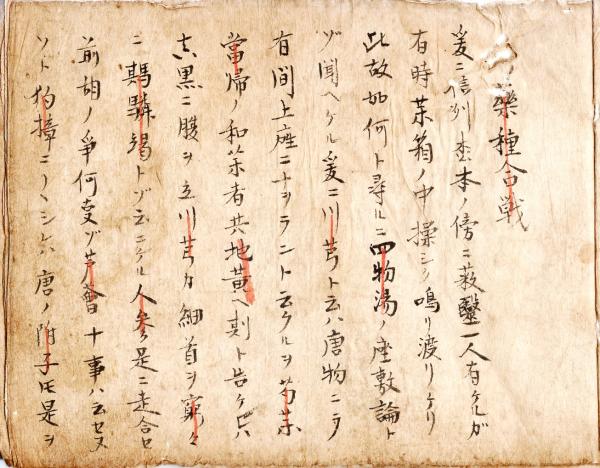 薬種合戦
爰ニ信州杢本ノ傍ニ薮醫一人有ケルガ
有時茶箱ノ中操シク鳴リ渡リケリ
此故如何ト尋ルニ四物湯ノ座敷論ト
ゾ聞ヘケル爰ニ川芎ト云ハ唐物ニテ
有間上座ニナヲラント云ケルヲ芍茶
當帰ノ和茶者共地黄ヘ刻ト告ケレハ
真黒ニ腹ヲ立川芎カ細首ヲ窮々
ニ騏驎竭トゾ云ニケル人参是ニ走合セ
前胡ノ爭何事ゾ芦薈十事ハ云セヌ
ソト狗椲ニ〳〵シケハ唐ノ附子氏是ヲ